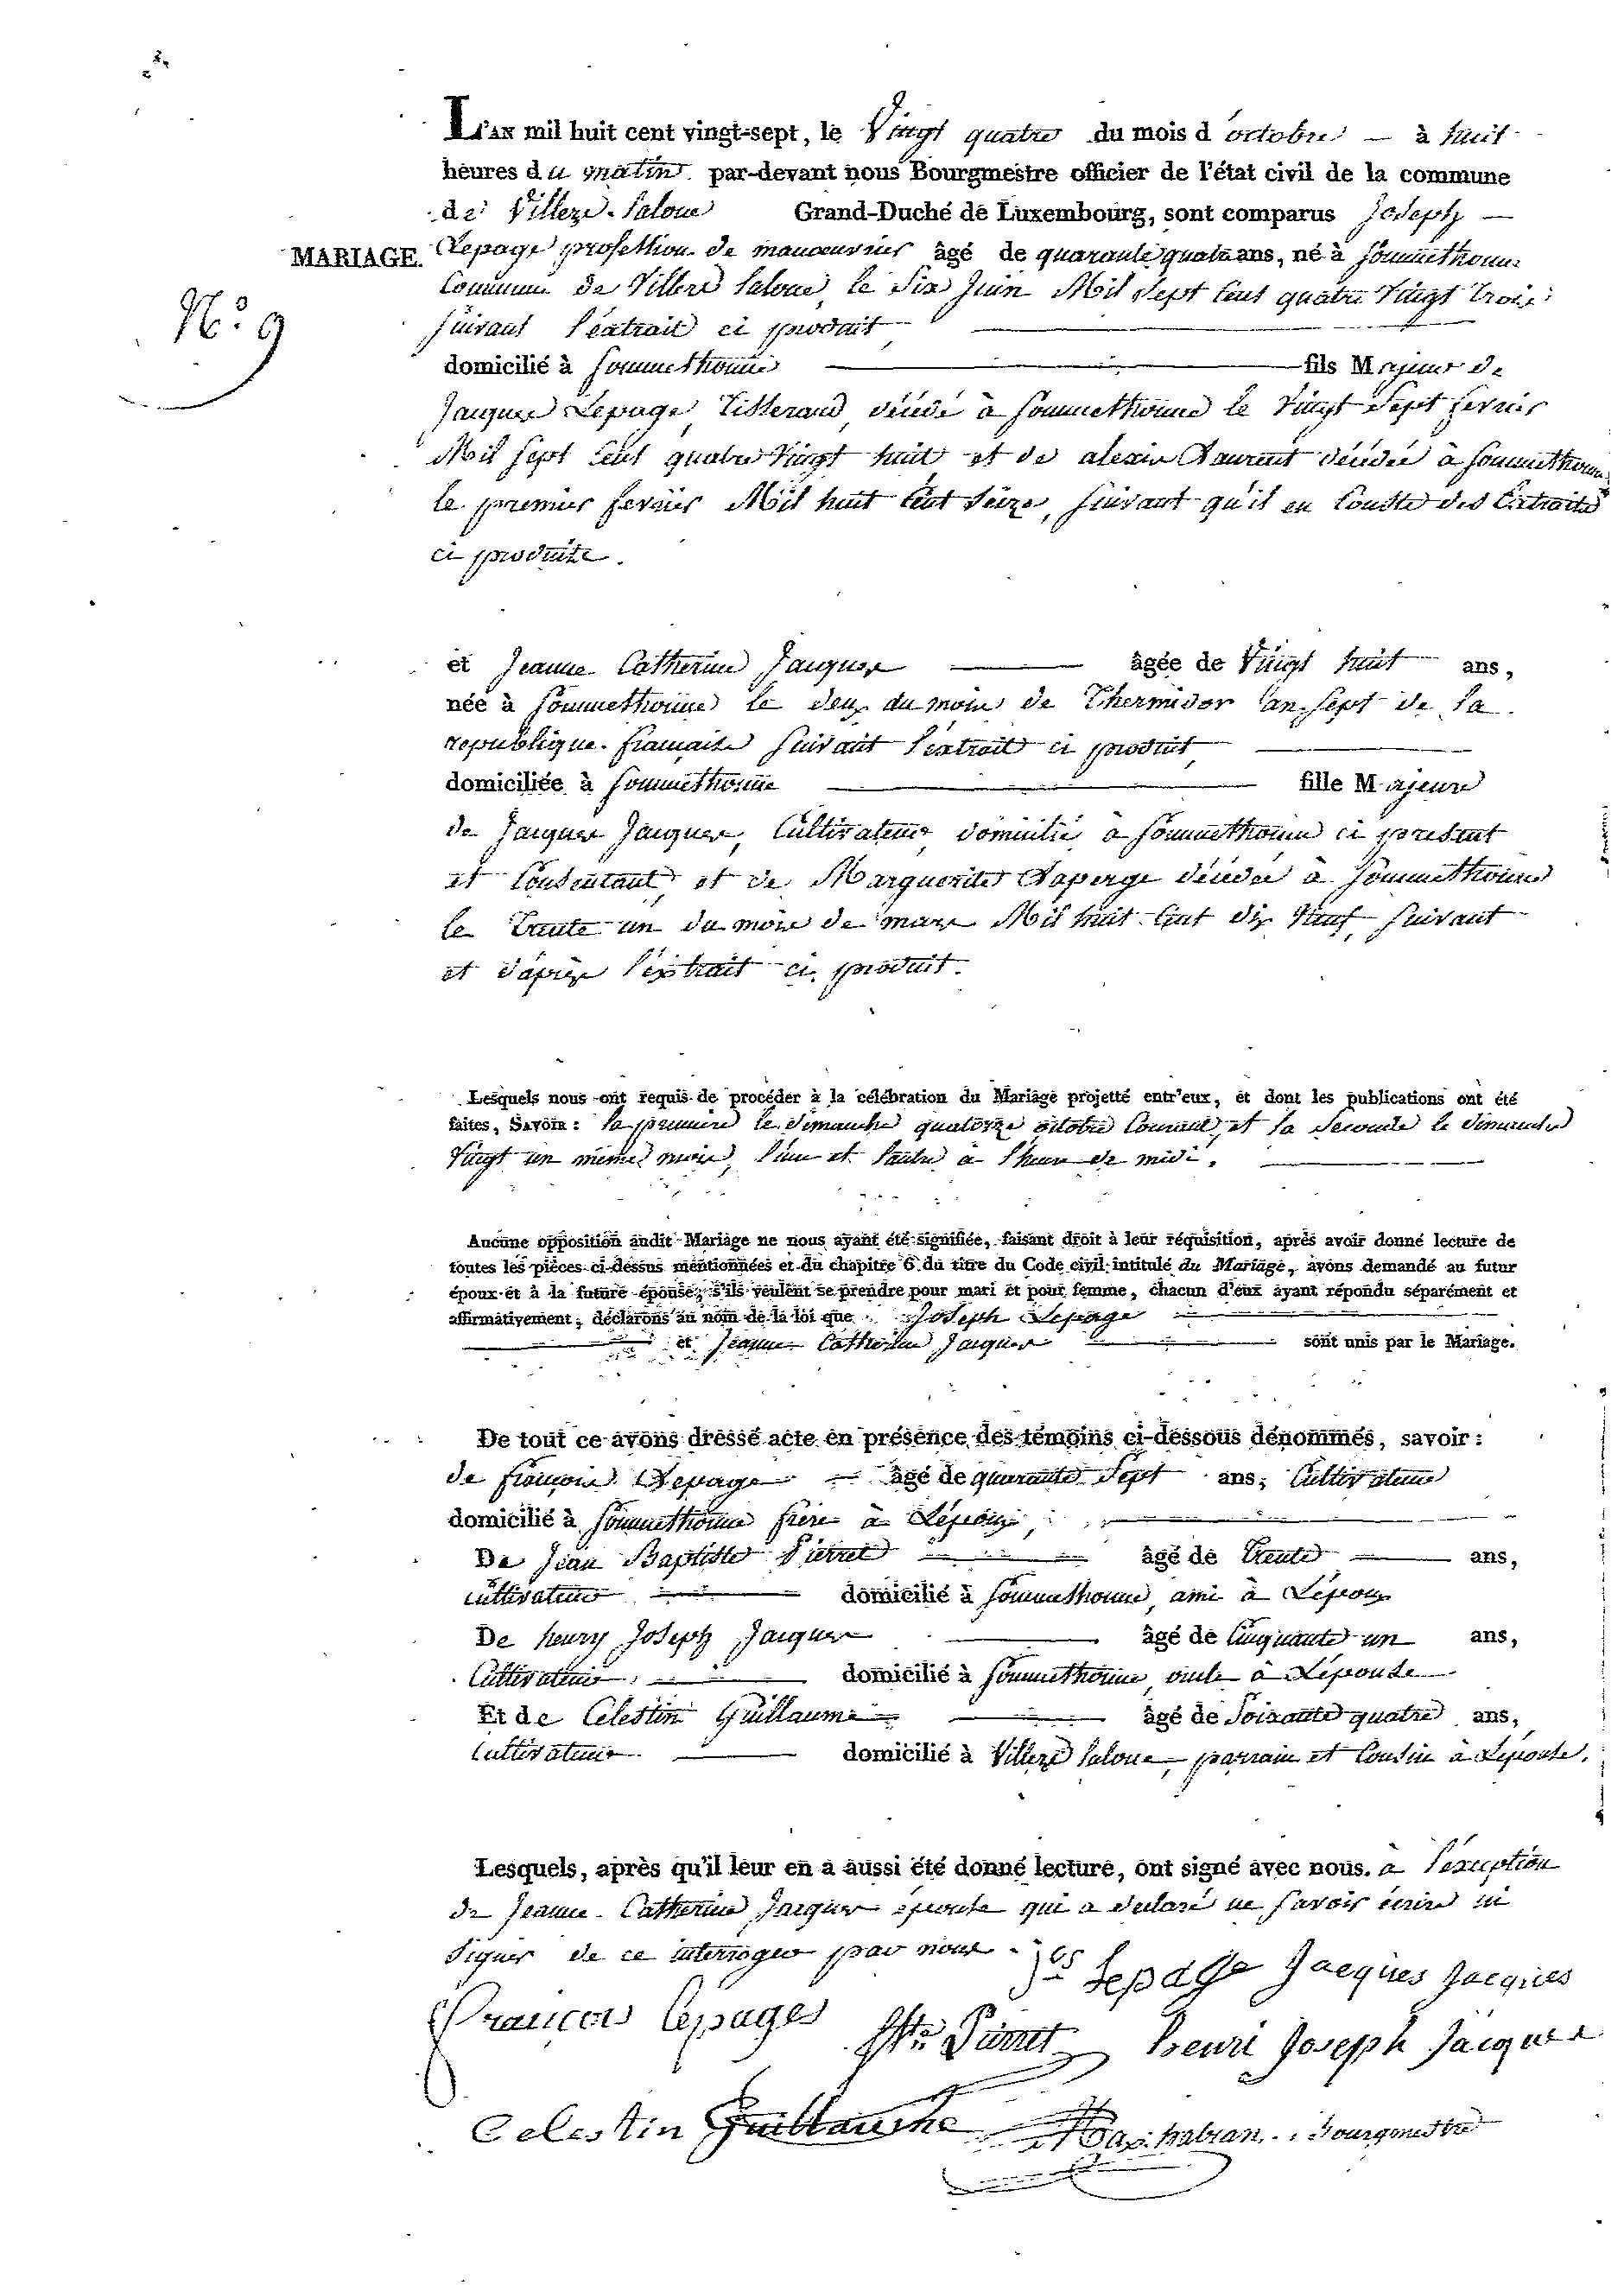 L'AN mil huit cent vingt-sept, le Vingt quatre du mois d'octobre — à huit
heures du matin par-devant nous Bourgmestre officier de l'état civil de la commune
de Villers-laloue Grand-Duché de Luxembourg, sont comparus Joseph —
MARIAGE. Lepage profession de manoeuvrier âgé de quarante quatre ans, né à Sommethonne
N.º 9
Commune de Villers laloue, le Six Juin Mil Sept Cent quatre Vingt Trois
suivant l'extrait ci produit
domicilié à Sommethonne fils Majeur de
Jacques Lepage, Tisserand, décédé à Sommethonne le Vingt Sept fevrier
Mil sept Cent quatre Vingt huit et de Laurent décédée à Sommethonne
le premier fevrier Mil huit Cent Seize, suivant qu'il en Conste des Extraits
ci produits.
et Jeanne Catherine Jacques âgée de Vingt huit ans,
née à Sommethonne le deux du mois de Thermidor an Sept de la
republique française suivant l'extrait ci produit
domiciliée à Sommethonne fille Majeure
de Jacques Jacques, Cultivateur domicilié à Sommethonne ci present
et Consentant, et de Marguerite Laperge décédée à Sommethonne
le Trente un du mois de mars Mil huit Cent dix Neuf, suivant
et d'après l'extrait ci produit.
Lesquels nous ont requis de procéder à la célébration du Mariage projetté entr'eux, et dont les publications ont été
faites, SAVOIR : la premiere le dimanche quatorze octobre Courant, et la Seconde le dimanche
Vingt un même mois, l'une et l'autre à l'heure de midi.
Aucune opposition audit Mariage ne nous ayant été signifiée, faisant droit à leur réquisition, après avoir donné lecture de
toutes les pièces ci-dessus mentionnées et du chapitre 6 du titre du Code civil intitulé du Mariage, avons demandé au futur
époux et à la future épouse, s'ils veulent se prendre pour mari et pour femme, chacun d'eux ayant répondu séparément et
affirmativement, déclarons au nom de la loi que Joseph Lepage
et Jeanne Catherine Jacques sont unis par le Mariage.
De tout ce avons dressé acte en présence des témoins ci-dessous dénommés, savoir :
de françois Lepage âgé de quarante Sept ans, Cultivateur
domicilié à Sommethonne frère à L'époux,
De Jean Baptiste Pierret âgé de Trente ans,
cultivateur domicilié à Sommethonne, ami à L'époux
De henry Joseph Jacques âgé de Cinquante un ans,
Cultivateur domicilié à Sommethonne, oncle à L'épouse
Et de Celestin Guillaume âgé de Soixante quatre ans,
Cultivateur domicilié à Villers laloue, parrain et Cousin à L'épouse.
Lesquels, après qu'il leur en a aussi été donné lecture, ont signé avec nous. à l'exception
de Jeanne Catherine Jacques épouse qui a declaré ne savoir écrire ni
signer de ce interroger par nous.
Jos lepage Jacques Jacques
François lepages Bte Pierret henri Joseph Jacques
Celestin Guillaume bourgmestre